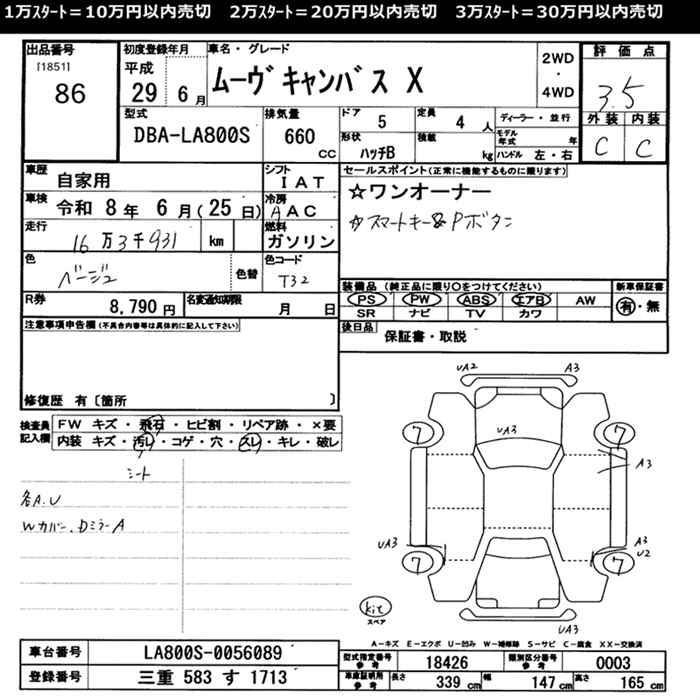 1万スタート＝10万円以内売切　2万スタート＝20万円以内売切　3万スタート＝30万円以内売切
出品番号
[1851]
86
初度登録年月
平成
29 6 月
車名・グレード
ムーヴキャンバス X
2WD
・
4WD
評価点
3.5
外装 内装
C C
型式
DBA-LA800S
排気量
660
CC
ドア 5
定員 4 人
形状 ハッチB
積載 kg
ディーラー・並行
モデル年式 年
ハンドル 左・右
車歴 自家用
シフト IAT
車検 令和 8年 6月(25日)
冷房 AAC
走行 16万3千931 km
燃料 ガソリン
色 ベージュ
色替
色コード T32
R券 8,790 円
名変通知期限 月 日
セールスポイント(正常に機能するものに限ります)
☆ワンオーナー
☆スマートキー&Pボタン
装備品(純正品に限り〇をつけてください)
新車保証書
PS PW ABS エアB AW
有・無
SR ナビ TV カワ
後日品 保証書・取説
注意事項申告欄(不具合内容等は具体的に記入して下さい)
修復歴 有〔箇所 〕
検査員記入欄
FW キズ・飛石・ヒビ割・リペア跡・×要
内装 キズ・汚し・コゲ・穴・スレ・キレ・破レ
シート
各A.U
Wカバー、DミラーA
UA2 A3
UA3
7 7
A3
UA3
A3
U2
7 7
UA3
kit
スペア
A－キズ E－エクボ U－凹み W－補修跡 S－サビ C－腐食 XX－交換済
車台番号 LA800S-0056089
登録番号 三重 583 す 1713
型式指定番号 参考 18426
類別区分番号 参考 0003
車庫証明用 参考 長さ 339 cm 幅 147 cm 高さ 165 cm